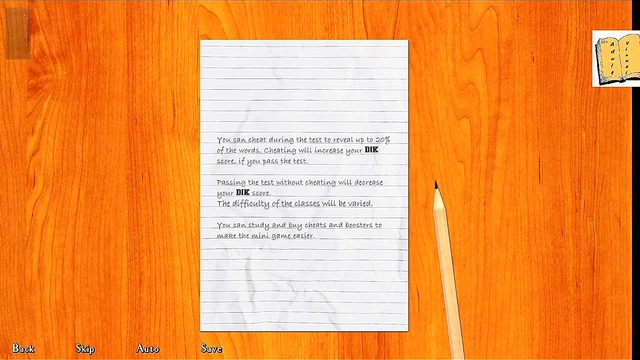 You can cheat during the test to reveal up to 20%
of the words. Cheating will increase your DIK
score, if you pass the test.
Passing the test without cheating will decrease
your DIK score.
The difficulty of the classes will be varied.
You can study and buy cheats and boosters to
make the mini game easier.
Back Skip Auto Save